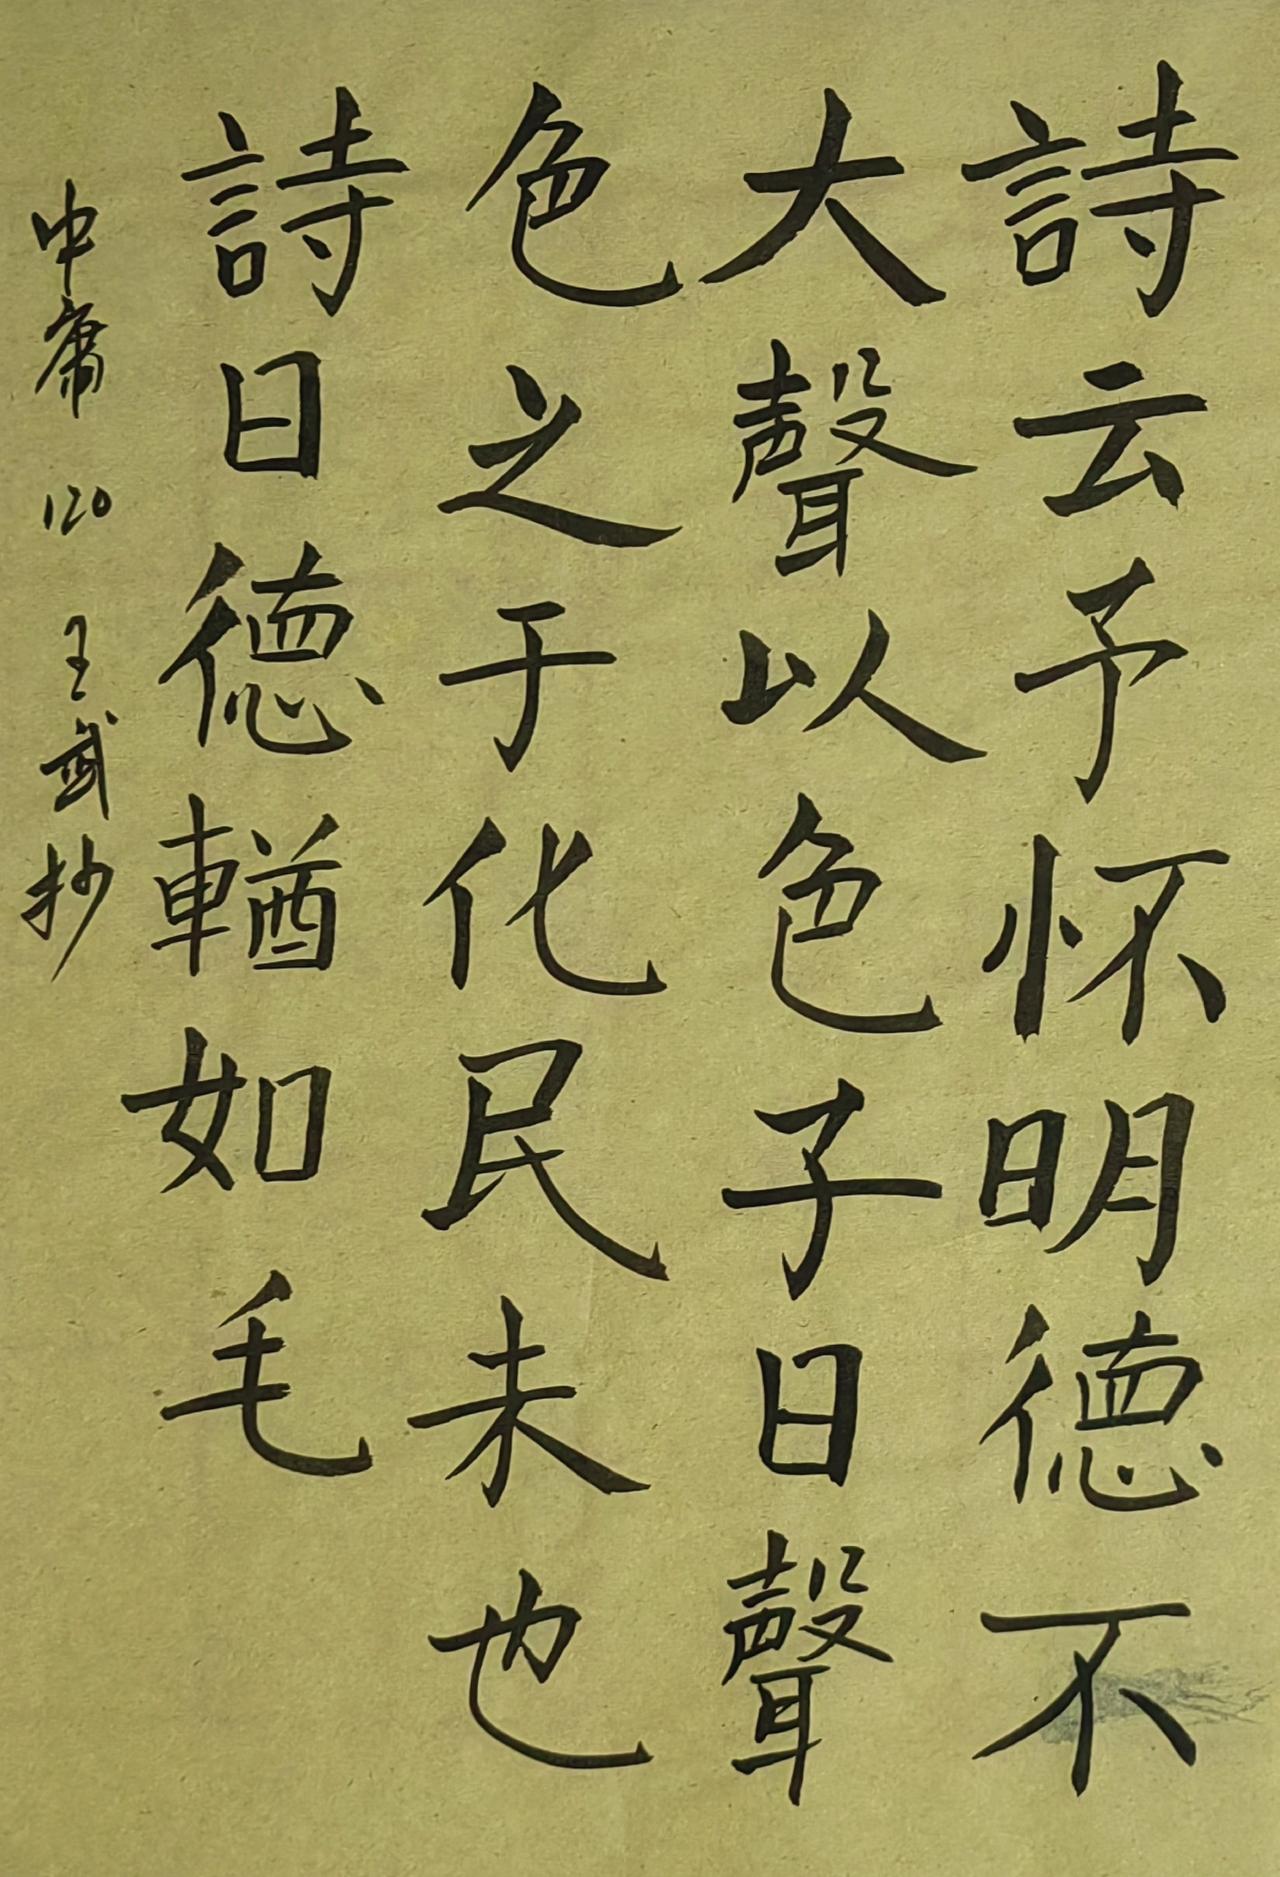 詩云予怀明德不
大聲以色子曰聲
色之于化民未也
詩曰德輶如毛
中庸 120 王武抄